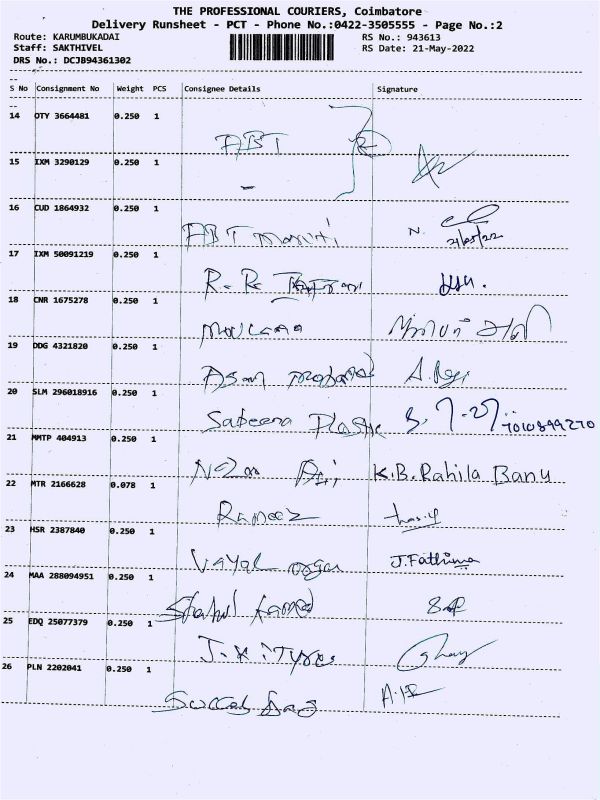 THE PROFESSIONAL COURIERS, Coimbatore
Delivery Runsheet - PCT - Phone No.:0422-3505555 - Page No.:2
Route: KARUMBUKADAI RS No.: 943613
Staff: SAKTHIVEL RS Date: 21-May-2022
DRS No.: DCJB94361302
S No Consignment No Weight PCS Consignee Details Signature
14 OTY 3664481 0.250 1
ABT
15 IXM 3290129 0.250 1
16 CUD 1864932 0.250 1
ABT Maruti N.
21/05/22
17 IXM 50091219 0.250 1
R. R.
18 CNR 1675278 0.250 1
19 DDG 4321820 0.250 1
A.
20 SLM 296018916 0.250 1
Sabeena Plastic
7010899270
21 MMTP 404913 0.250 1
K.B. Rahila Banu
22 MTR 2166628 0.078 1
Rameez
23 HSR 2387840 0.250 1
Vayal J. Fathima
24 MAA 288094951 0.250 1
25 EDQ 25077379 0.250 1
J.K. Tyres
26 PLN 2202041 0.250 1